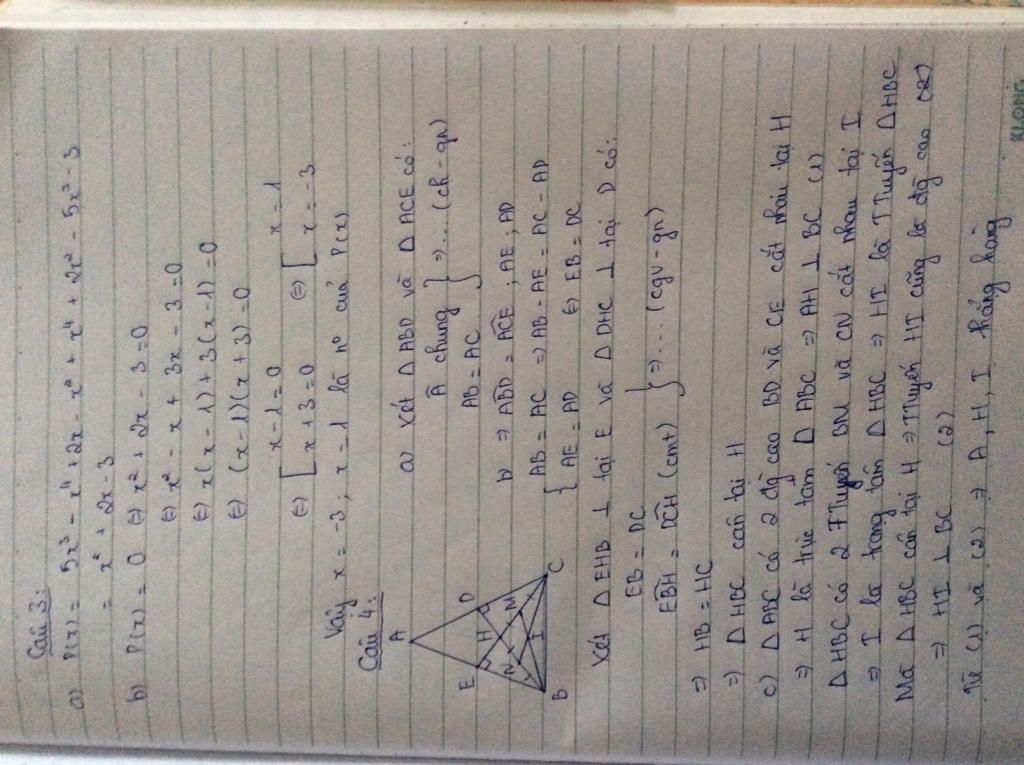 Câu 3:
a) P(x) = 5x³ - x⁴ + 2x - x² + x⁴ + 2x² - 5x³ - 3
= x² + 2x - 3
b) P(x) = 0 (=) x² + 2x - 3 = 0
(=) x² - x + 3x - 3 = 0
(=) x(x - 1) + 3(x - 1) = 0
(=) (x - 1)(x + 3) = 0
(=) [ x - 1 = 0 (=) [ x = 1
x + 3 = 0 x = -3
Vậy x = -3; x = 1 là n° của P(x)
Câu 4:
a) Xét Δ ABD và Δ ACE có:
Â chung } => ... (ch - gn)
AB = AC
b) => ABD̂ = ACÊ ; AE = AD
{ AB = AC => AB - AE = AC - AD
AE = AD (=) EB = DC
A
E D
H
N M
I
B C
Xét Δ EHB ⊥ tại E và Δ DHC ⊥ tại D có:
EB = DC
EBĤ = DCĤ (cmt) } => ... (cgv - gn)
=> HB = HC
=> Δ HBC cân tại H
c) Δ ABC có 2 đg cao BD và CE cắt nhau tại H
=> H là trực tâm Δ ABC => AH ⊥ BC (1)
Δ HBC có 2 TTuyến BM và CN cắt nhau tại I
=> I là trọng tâm Δ HBC => HI là TTuyến Δ HBC
Mà Δ HBC cân tại H => TTuyến HI cũng là đg cao
=> HI ⊥ BC (2)
Từ (1) và (2) => A, H, I thẳng hàng
KLONG